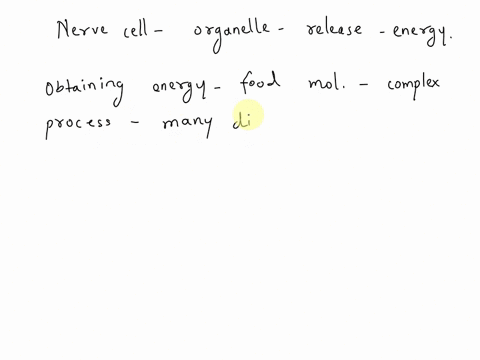 Nerve cell - organelle - release - energy.
Obtaining energy - food mol. - complex
process - many di